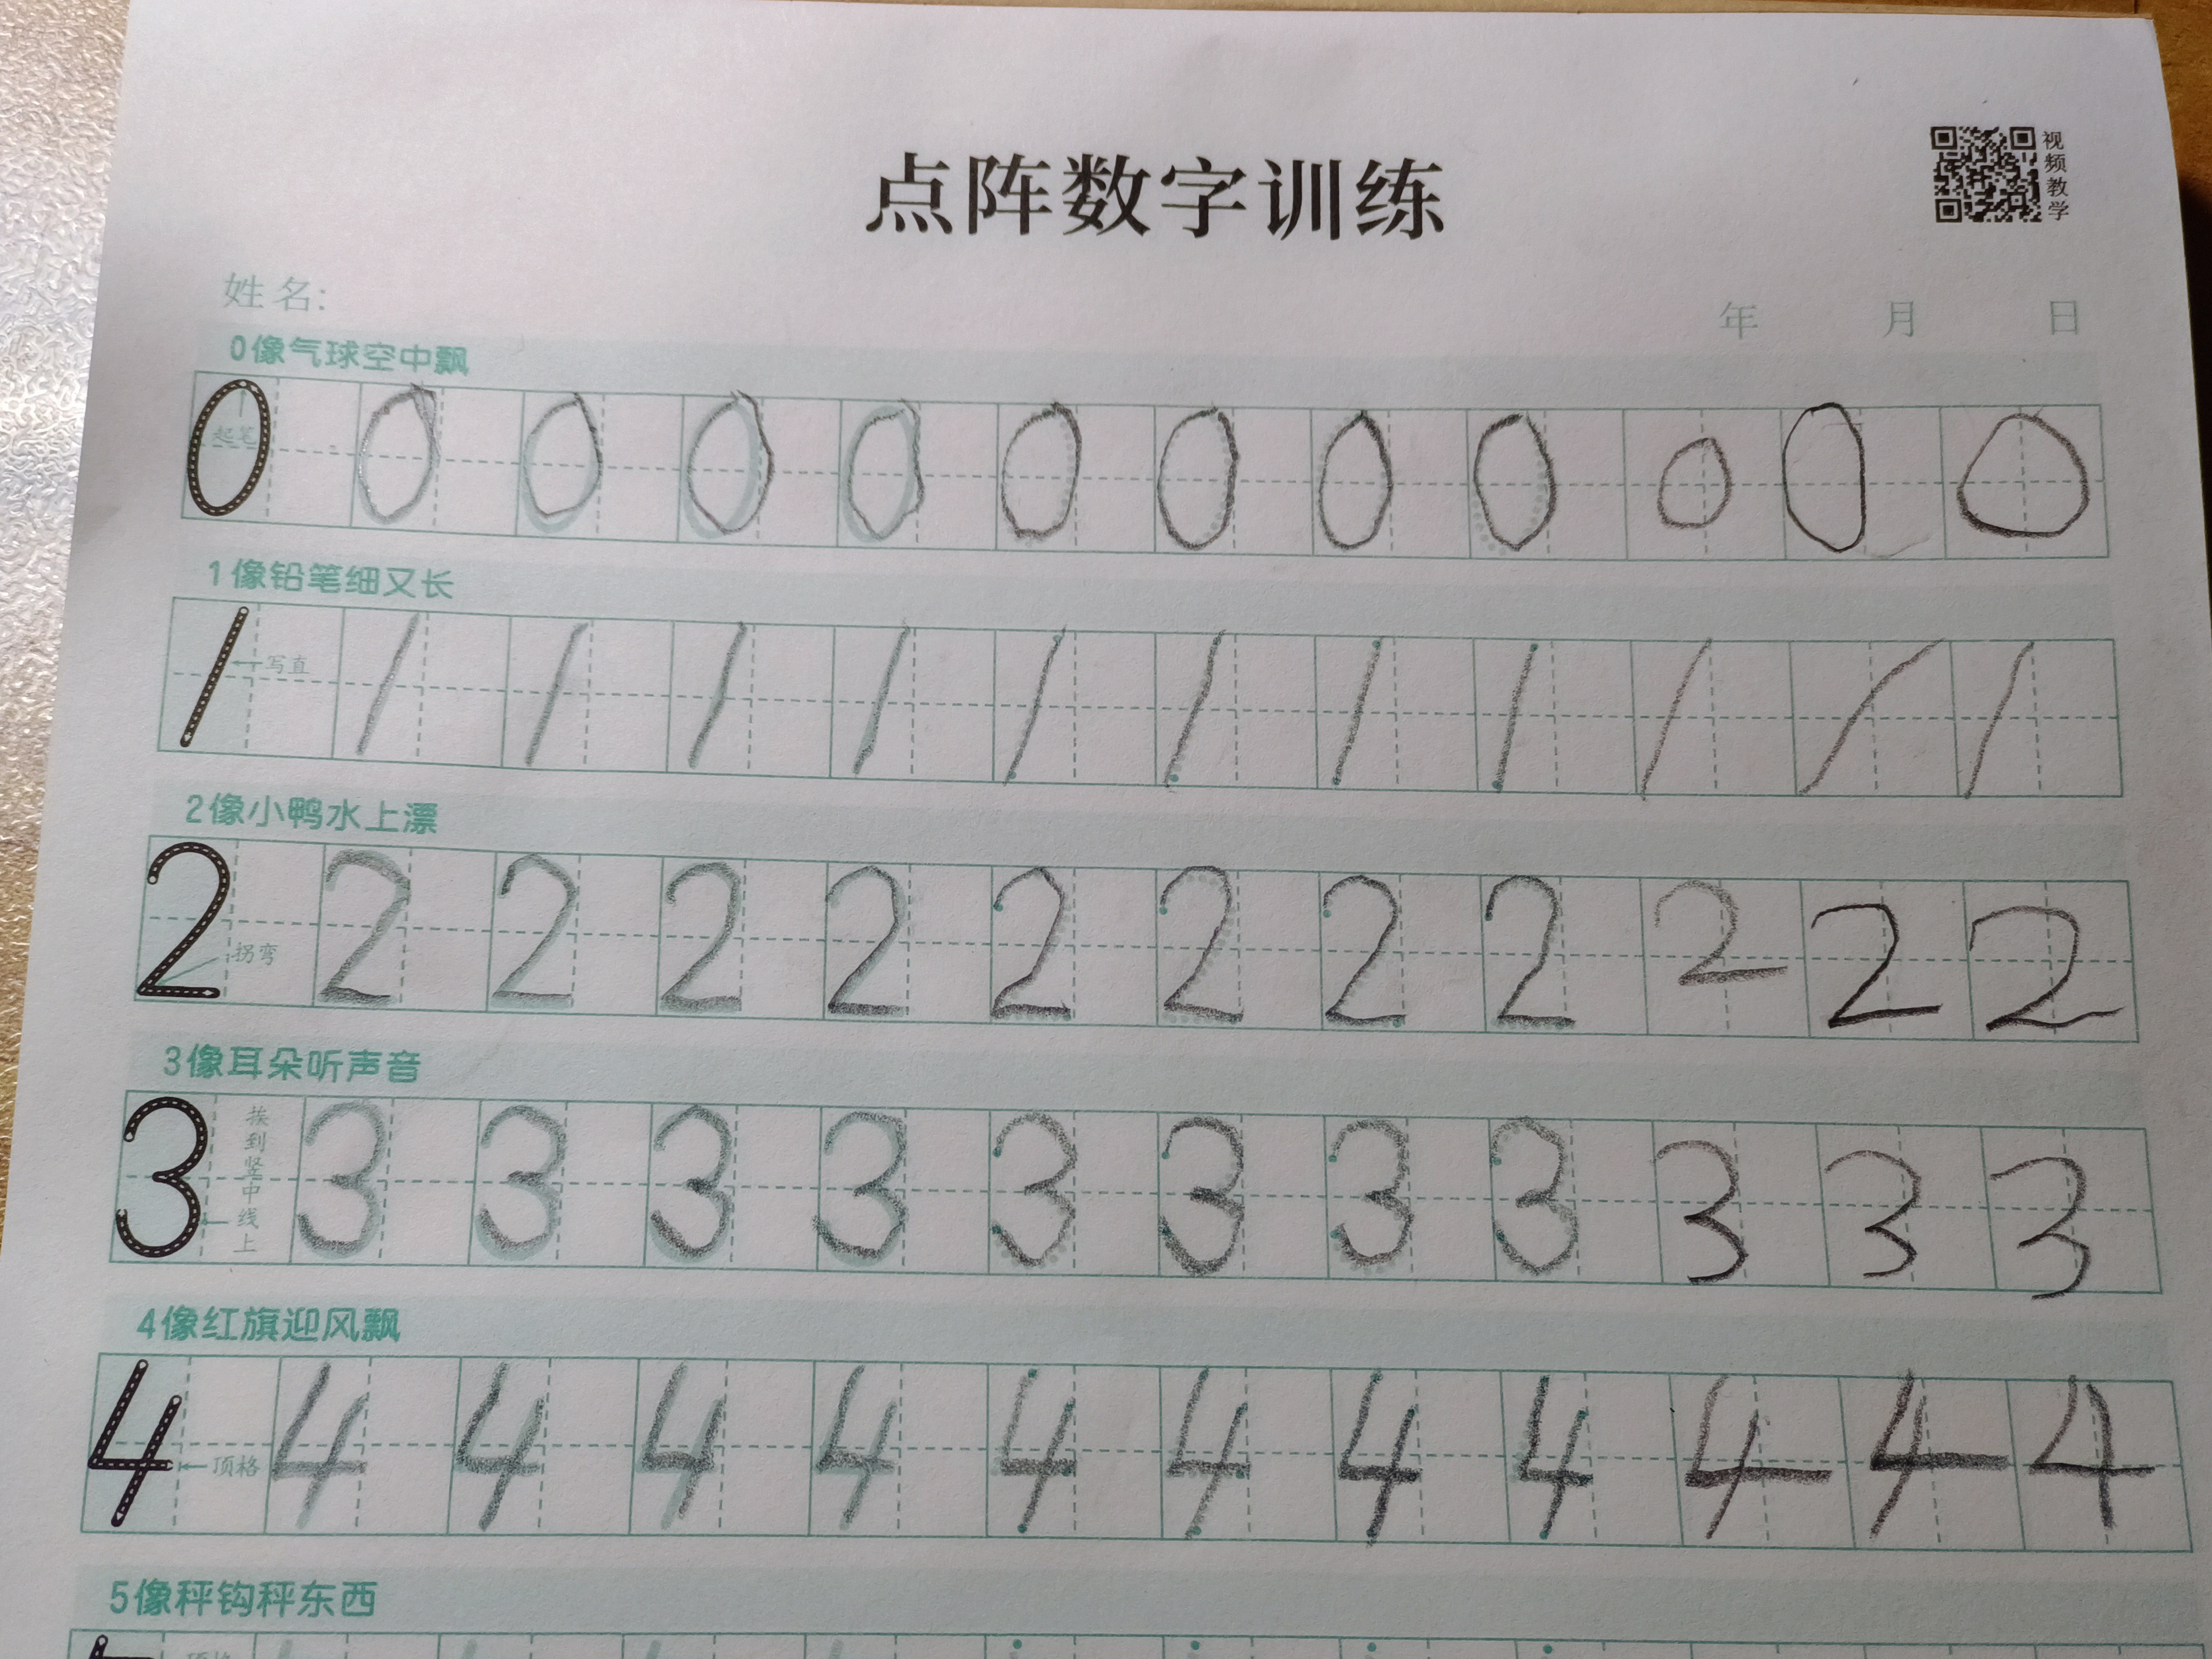 点阵数字训练
视频教学
姓名:
年 月 日
0像气球空中飘
0 起笔 0 0 0 0 0 0 0 0 0 0 0
1像铅笔细又长
1 写直 1 1 1 1 1 1 1 1 1 1 1
2像小鸭水上漂
2 拐弯 2 2 2 2 2 2 2 2 2 2 2
3像耳朵听声音
3 挨到竖中线上 3 3 3 3 3 3 3 3 3 3 3
4像红旗迎风飘
4 顶格 4 4 4 4 4 4 4 4 4 4 4
5像秤钩秤东西